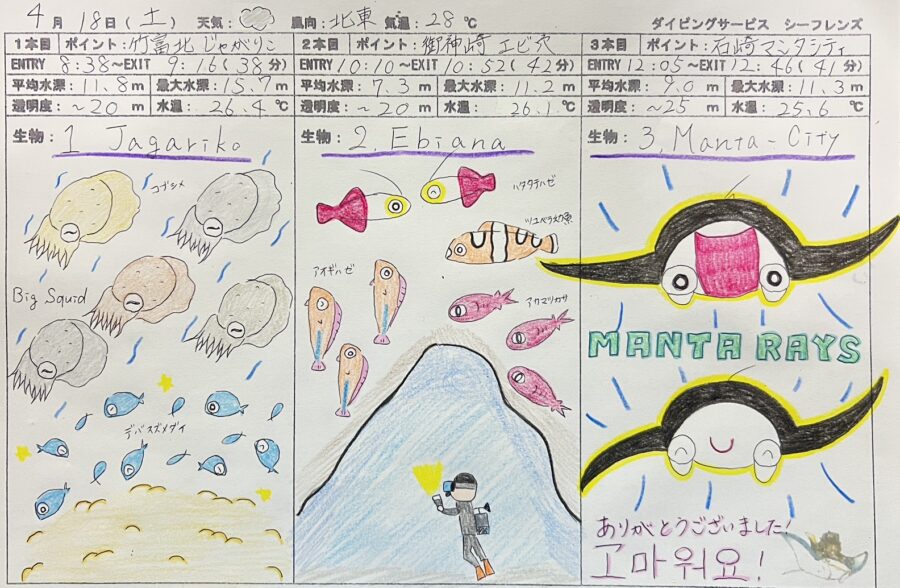 4月 18日(土) 天気: 風向:北東 気温:28℃ ダイビングサービス シーフレンズ
1本目 ポイント:竹富北じゃがりこ
ENTRY 8:38〜EXIT 9:16(38分)
平均水深:11.8m 最大水深:15.7m
透明度:~20m 水温:26.4℃
生物: 1 Jagariko
コブシメ
Big Squid
デバスズメダイ
2本目 ポイント:御神崎エビ穴
ENTRY 10:10〜EXIT 10:52(42分)
平均水深:7.3m 最大水深:11.2m
透明度:~20m 水温:26.1℃
生物: 2. Ebiana
ハタタテハゼ
ツユベラ幼魚
アオギハゼ
アカマツカサ
3本目 ポイント:石崎マンタシティ
ENTRY 12:05〜EXIT 12:46(41分)
平均水深:9.0m 最大水深:11.3m
透明度:~25m 水温:25.6℃
生物: 3. Manta-City
MANTA RAYS
ありがとうございました!
고마워요!